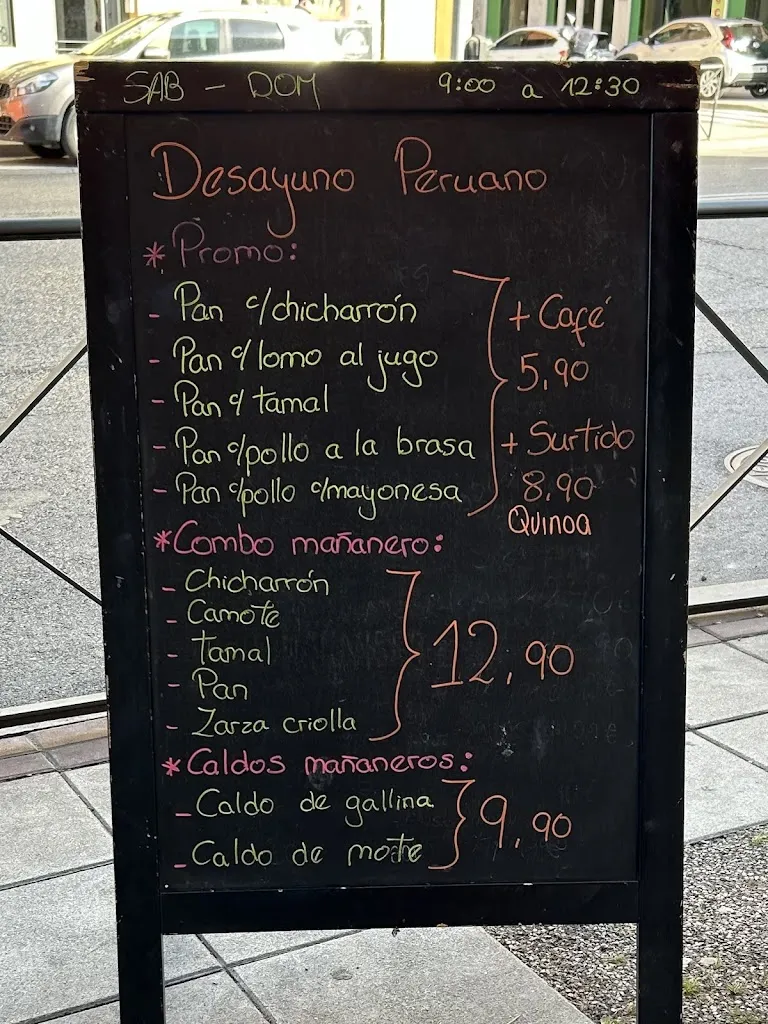 SAB - DOM 9:00 a 12:30
Desayuno Peruano
* Promo:
- Pan c/chicharrón
- Pan c/lomo al jugo
- Pan c/ tamal
- Pan c/pollo a la brasa
- Pan c/pollo c/mayonesa
+ Café
5,90
+ Surtido
8,90
Quinoa
*Combo mañanero:
- Chicharrón
- Camote
- Tamal
- Pan
- Zarza criolla
12,90
*Caldos mañaneros:
- Caldo de gallina
- Caldo de mote
9,90